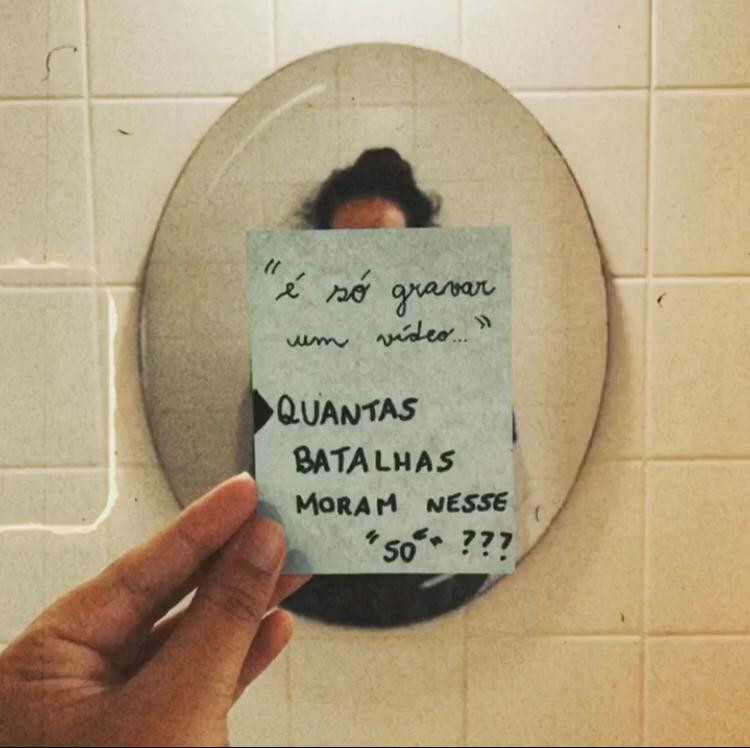 "é só gravar
um vídeo..."
QUANTAS
BATALHAS
MORAM NESSE
"SO" ???